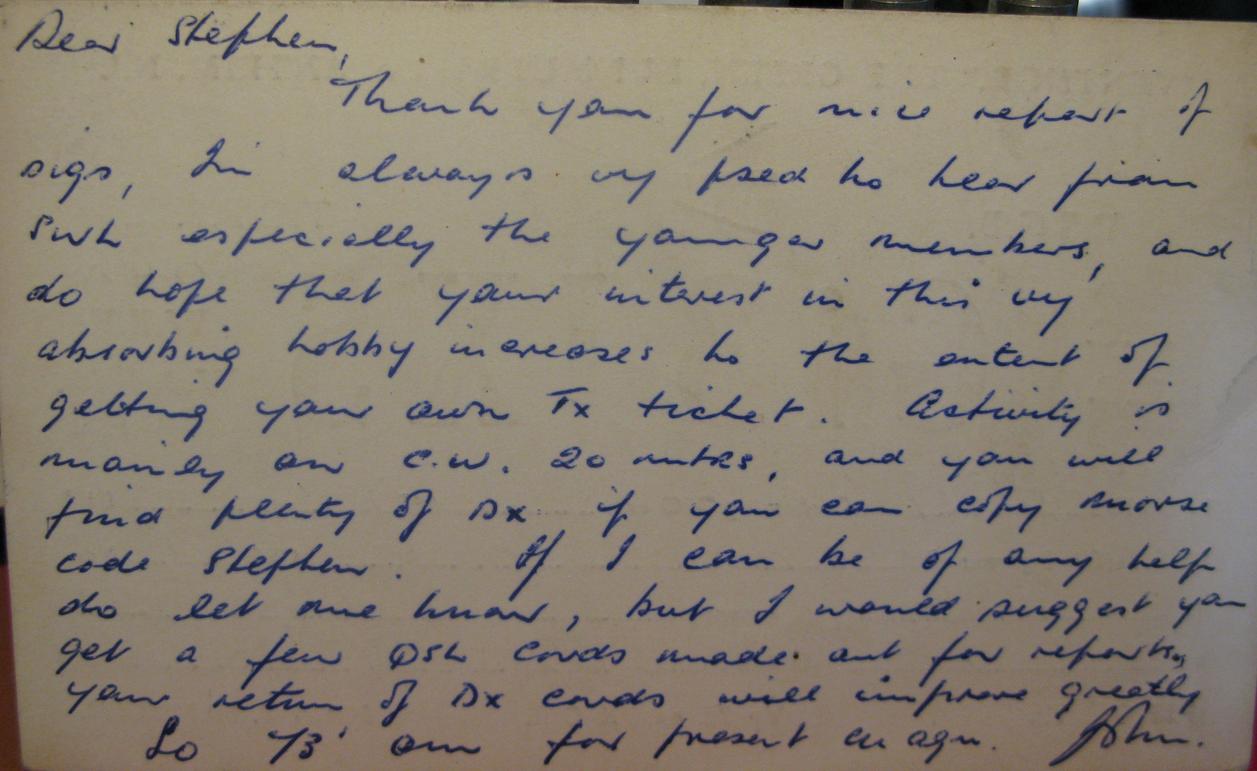 Dear Stephen,
Thank you for nice report of
sigs, Im always vy psed to hear from
Swls especially the younger members, and
do hope that your interest in this vy
absorbing hobby increases to the extent of
getting your own Tx ticket. Activity is
mainly on C.W. 20 mtrs, and you will
find plenty of Dx if you can copy morse
code Stephen. If I can be of any help
do let me know, but I would suggest you
get a few QSL cards made out for reports,
your return of Dx cards will improve greatly
So 73' om for present cu agn. John.